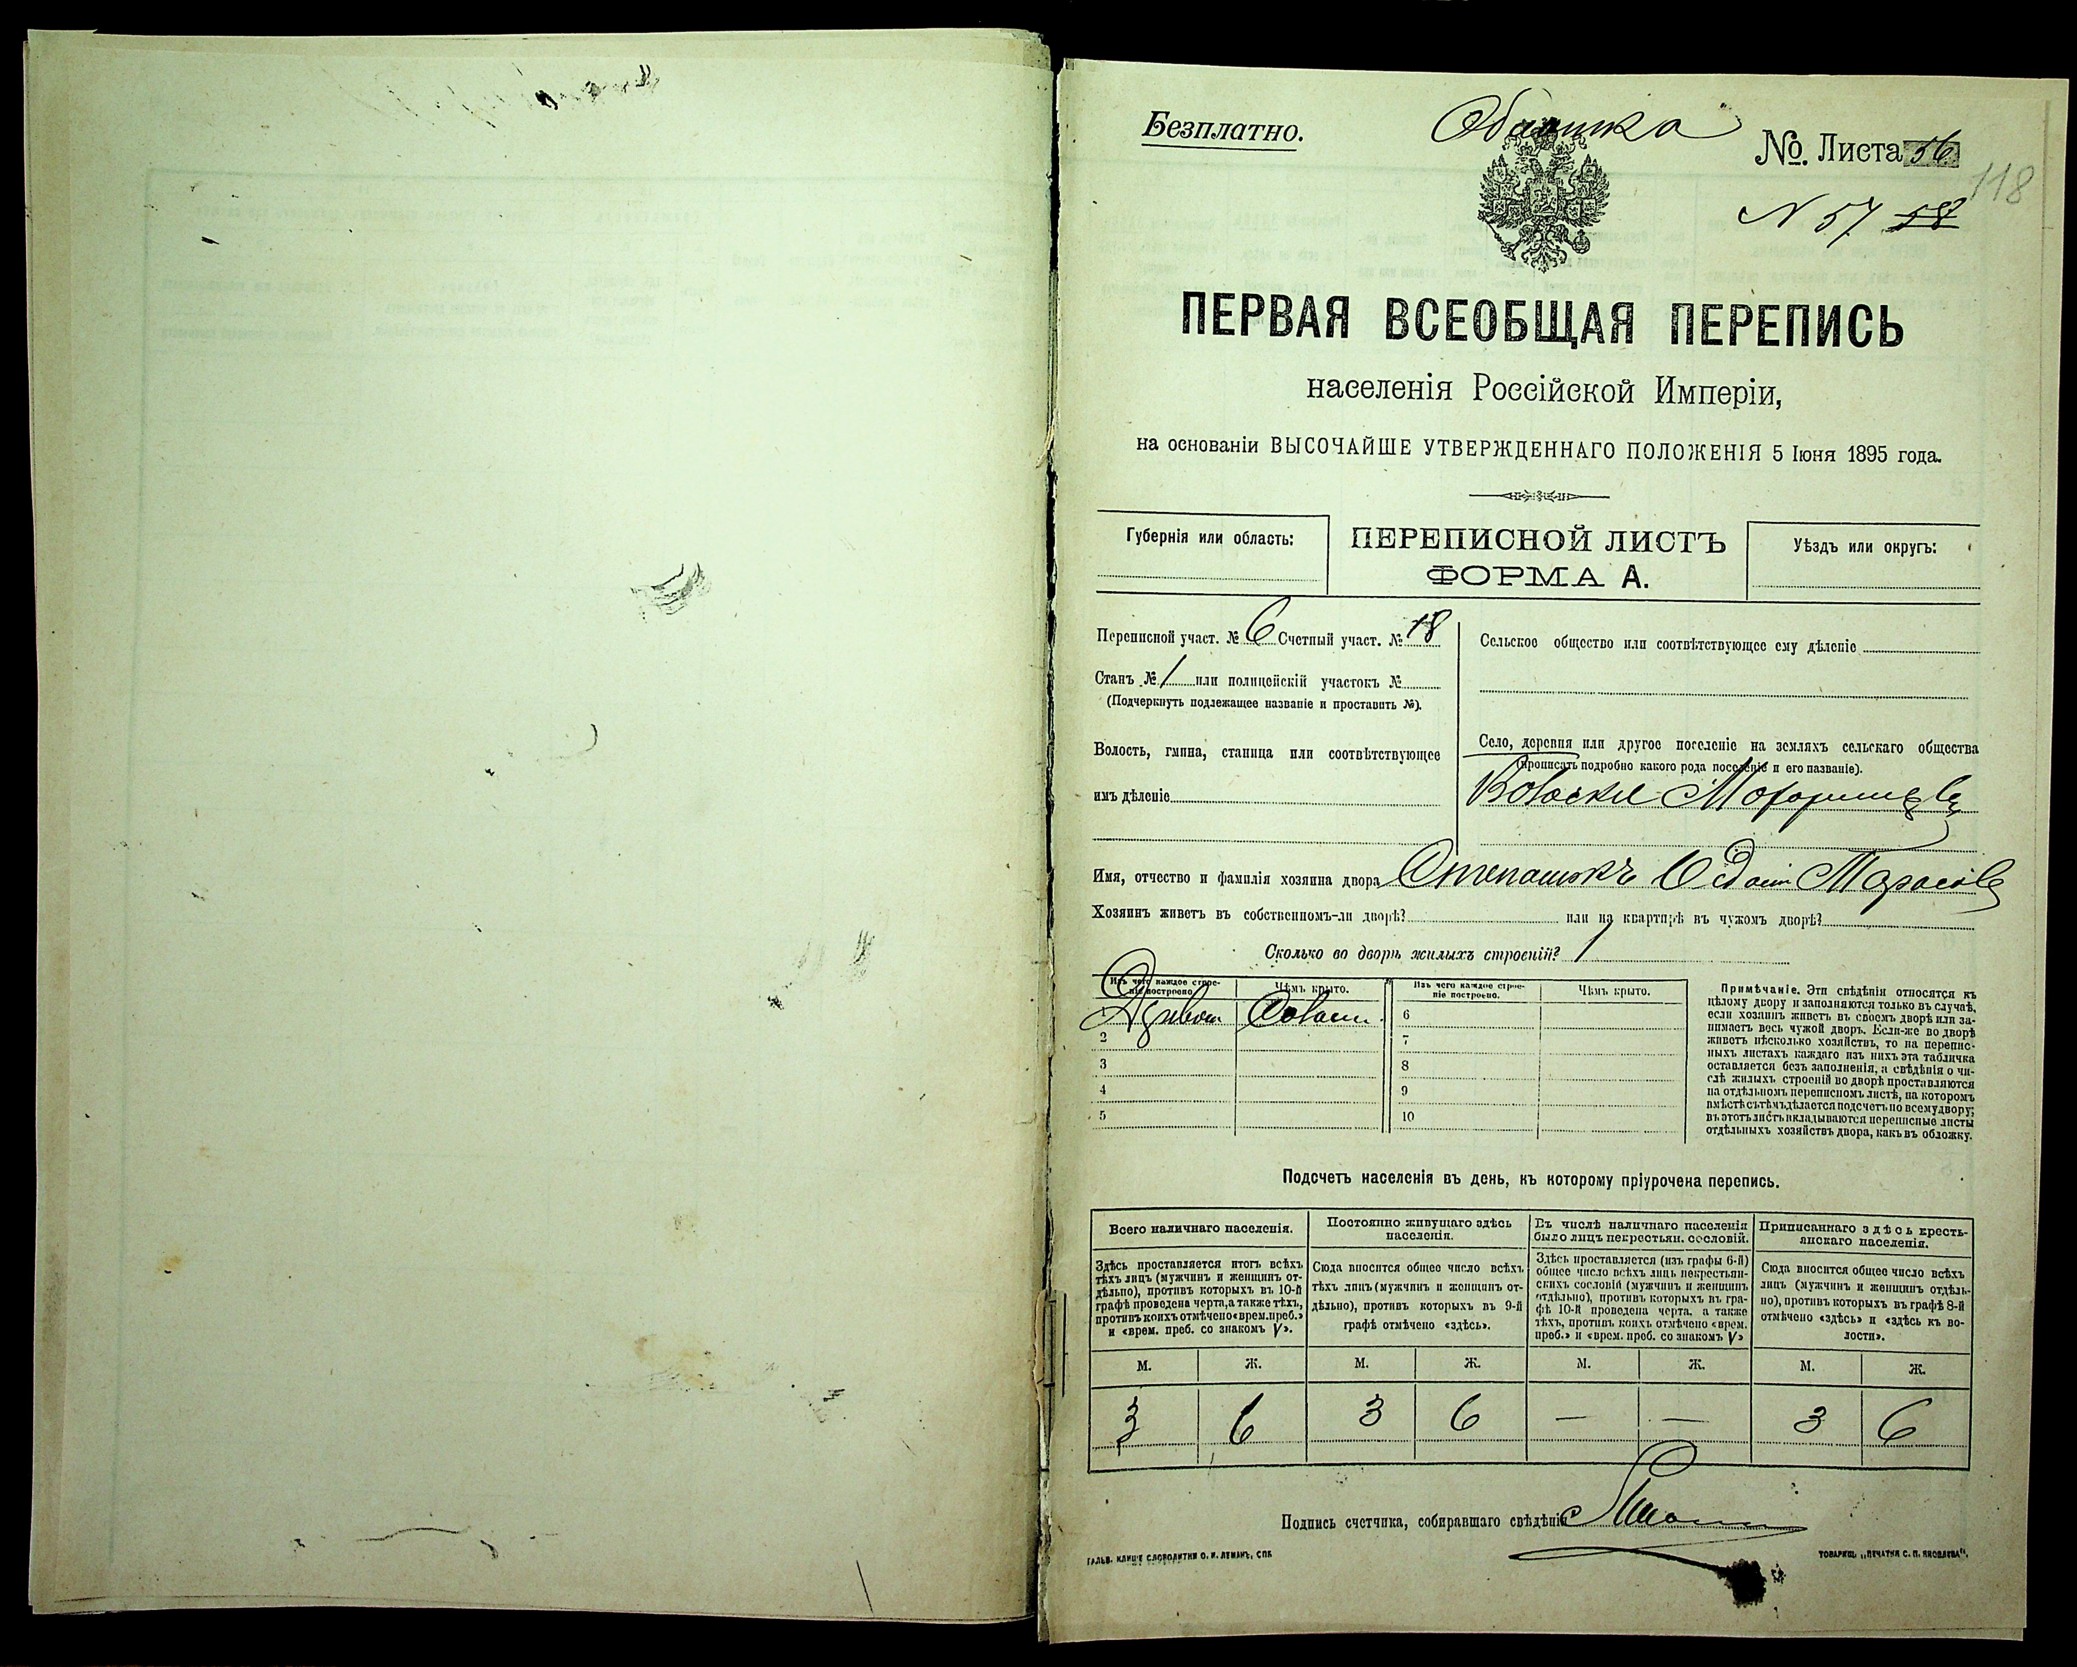 Безплатно.
№ Листа 56
118
N 57 58
ПЕРВАЯ ВСЕОБЩАЯ ПЕРЕПИСЬ
населенія Россійской Имперіи,
на основаніи ВЫСОЧАЙШЕ УТВЕРЖДЕННАГО ПОЛОЖЕНІЯ 5 Іюня 1895 года.
Губернія или область:
ПЕРЕПИСНОЙ ЛИСТЪ
ФОРМА А.
Уѣздъ или округъ:
Переписной участ. № 6 Счетный участ. № 18
Станъ № 1 или полицейскій участокъ №
(Подчеркнуть подлежащее названіе и проставить №).
Волость, гмина, станица или соотвѣтствующее
имъ дѣленіе
Сельское общество или соотвѣтствующее ему дѣленіе
Село, деревня или другое поселеніе на земляхъ сельскаго общества
(прописать подробно какого рода поселеніе и его названіе).
Имя, отчество и фамилія хозяина двора
Хозяинъ живетъ въ собственномъ-ли дворѣ? или на квартирѣ въ чужомъ дворѣ?
Сколько во дворѣ жилыхъ строеній? 1
Изъ чего каждое строе-
ніе построено.
Чѣмъ крыто.
Изъ чего каждое строе-
ніе построено.
Чѣмъ крыто.
1
6
2
7
3
8
4
9
5
10
Примѣчаніе. Эти свѣдѣнія относятся къ
цѣлому двору и заполняются только въ случаѣ,
если хозяинъ живетъ въ своемъ дворѣ или за-
нимаетъ весь чужой дворъ. Если-же во дворѣ
живетъ нѣсколько хозяйствъ, то на перепис-
ныхъ листахъ каждаго изъ нихъ эта табличка
оставляется безъ заполненія, а свѣдѣнія о чи-
слѣ жилыхъ строеній во дворѣ проставляются
на отдѣльномъ переписномъ листѣ, на которомъ
вмѣстѣ съ тѣмъ дѣлается подсчетъ по всему двору;
въ этотъ листъ вкладываются переписные листы
отдѣльныхъ хозяйствъ двора, какъ въ обложку.
Подсчетъ населенія въ день, къ которому пріурочена перепись.
Всего наличнаго населенія.
Здѣсь проставляется итогъ всѣхъ
тѣхъ лицъ (мужчинъ и женщинъ от-
дѣльно), противъ которыхъ въ 10-й
графѣ проведена черта, а также тѣхъ,
противъ коихъ отмѣчено «врем. преб.»
и «врем. преб. со знакомъ V».
Постоянно живущаго здѣсь
населенія.
Сюда вносится общее число всѣхъ
тѣхъ лицъ (мужчинъ и женщинъ от-
дѣльно), противъ которыхъ въ 9-й
графѣ отмѣчено «здѣсь».
Въ числѣ наличнаго населенія
было лицъ некрестьян. сословій.
Здѣсь проставляется (изъ графы 6-й)
общее число всѣхъ лицъ некрестьян-
скихъ сословій (мужчинъ и женщинъ
отдѣльно), противъ которыхъ въ гра-
фѣ 10-й проведена черта, а также
тѣхъ, противъ коихъ отмѣчено «врем.
преб.» и «врем. преб. со знакомъ V»
Приписаннаго здѣсь кресть-
янскаго населенія.
Сюда вносится общее число всѣхъ
лицъ (мужчинъ и женщинъ отдѣль-
но), противъ которыхъ въ графѣ 8-й
отмѣчено «здѣсь» и «здѣсь къ во-
лости».
М. Ж. М. Ж. М. Ж. М. Ж.
3 6 3 6 — — 3 6
Подпись счетчика, собиравшаго свѣдѣнія
ГАЛЬВ. КЛИШЕ СЛОВОЛИТНИ О. И. ЛЕМАНЪ, СПБ
ТОВАРИЩ. „ПЕЧАТНЯ С. П. ЯКОВЛЕВА".